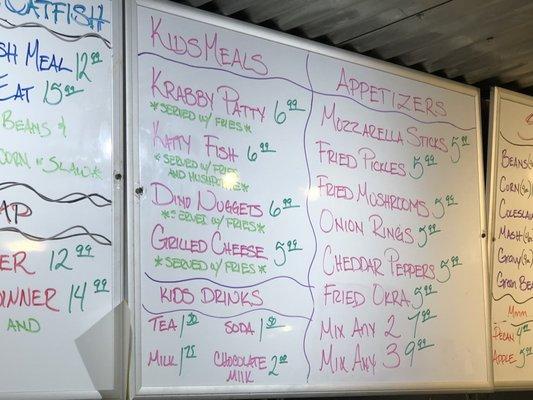 CATFISH
SH MEAL 12 99
EAT 15 99
BEANS &
CORN or SLAW
AP
ER 12 99
DINNER 14 99
AND
KIDS MEALS
KRABBY PATTY 6 99
*SERVED W/ FRIES*
KATTY FISH 6 99
*SERVED W/ FRIES
AND HUSHPUPPIES*
DINO NUGGETS 6 99
*SERVED W/ FRIES*
GRILLED CHEESE 5 99
*SERVED W/ FRIES*
KIDS DRINKS
TEA 1 50 SODA 1 50
MILK 1 75 CHOCOLATE MILK 2 00
APPETIZERS
MOZZARELLA STICKS 5 99
FRIED PICKLES 5 99
FRIED MUSHROOMS 5 99
ONION RINGS 5 99
CHEDDAR PEPPERS 5 99
FRIED OKRA 5 99
MIX ANY 2 7 99
MIX ANY 3 9 99
BEANS
CORN
COLESLAW
MASH
GRAVY
GREEN BEA
MMM
PECAN 4 99
APPLE